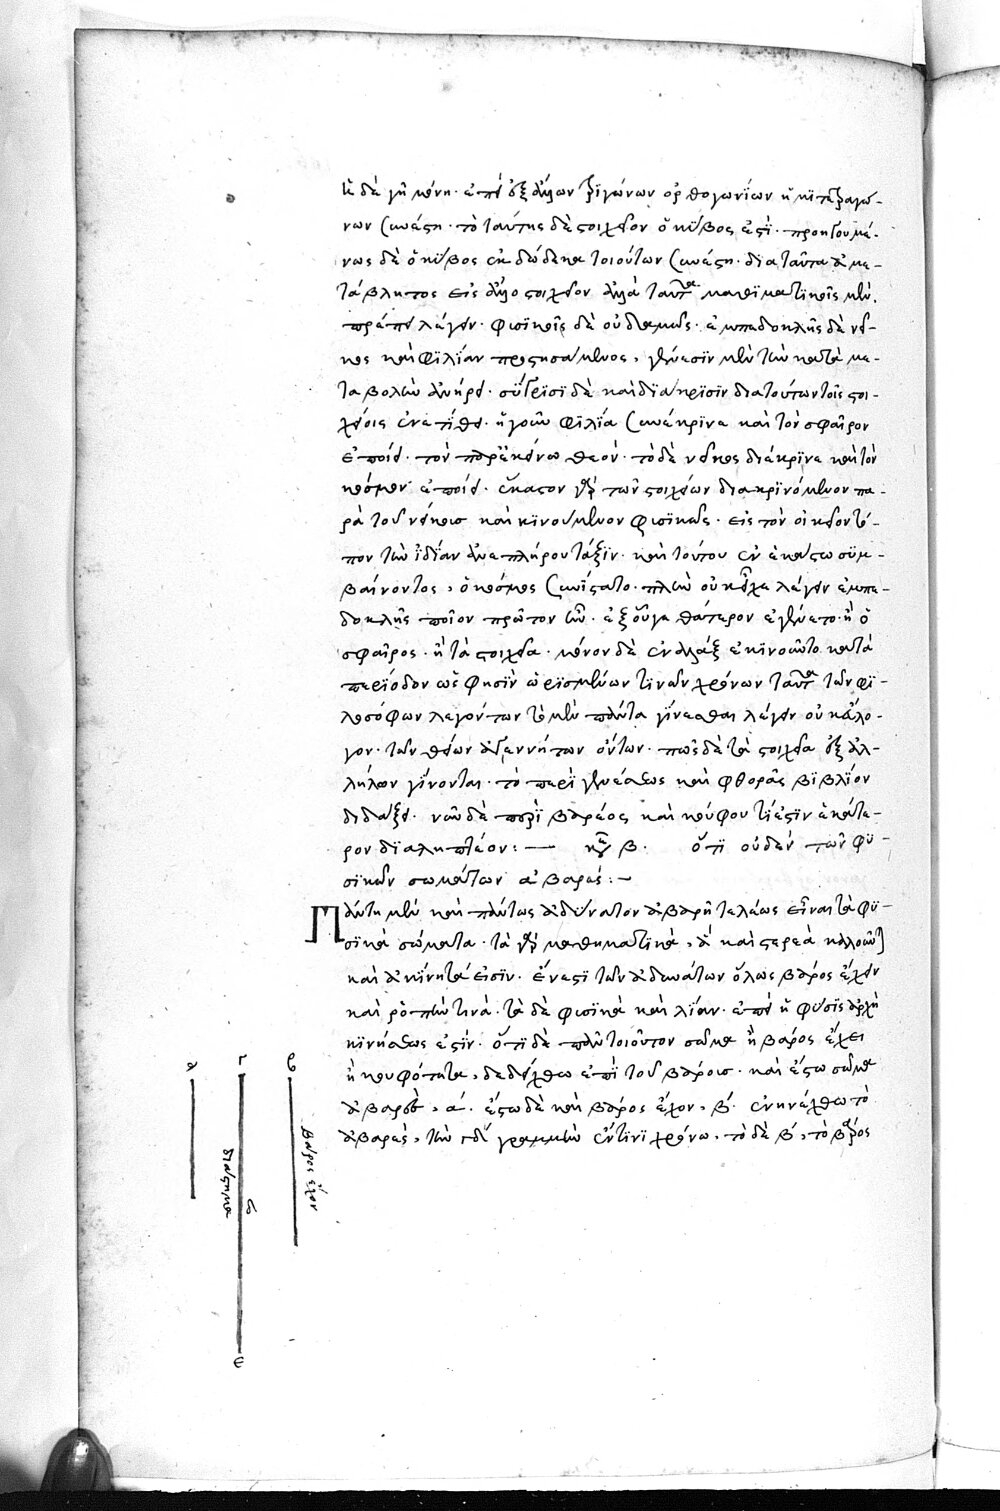 ἡ δὲ γῆ μόνη. ἐπεὶ ἐξ ἄλλων τριγώνων ὀρθογωνίων ἢ καὶ τετραγώ-
νων συνέστη. τὸ ταύτης δὲ στοιχεῖον ὁ κύβος ἐστί. προηγουμέ-
νως δὲ ὁ κύβος ἐκ δώδεκα τοιούτων συνέστη. διὰ ταῦτα ἀμε-
τάβλητος εἰς ἄλλο στοιχεῖον ἀλλὰ ταῦτα μαθηματικοῖς μὲν
πρέπει λέγειν. φυσικοῖς δὲ οὐδαμῶς. ἐμπεδοκλῆς δὲ νεῖ-
κος καὶ φιλίαν προστησάμενος, γένεσιν μὲν τὴν κατὰ με-
ταβολὴν ἀνῄρει. σύγκρισι δὲ καὶ διάκρισιν διὰ τούτων τοῖς στοι-
χείοις ἐνετίθει. ἡ γοῦν φιλία συνέκρινε καὶ τὸν σφαῖρον
ἐποίει. τὸν παρ' ἐκείνω θεόν. τὸ δὲ νεῖκος διέκρινε καὶ τὸν
κόσμον ἐποίει. ἕκαστον γὰρ τῶν στοιχείων διακρινόμενον πα-
ρὰ τοῦ νείκους καὶ κινούμενον φυσικῶς. εἰς τὸν οἰκεῖον τό-
πον τὴν ἰδίαν ἀνεπλήρου τάξιν. καὶ τούτου ἐν ἑκάστω συμ-
βαίνοντος, ὁ κόσμος συνίστατο. πλὴν οὐκ εἶχε λέγειν ἐμπε-
δοκλῆς ποῖον πρῶτον ἦν. ἐξ οὗ γε θάτερον ἐγένετο. ἢ ὁ
σφαῖρος. ἢ τὰ στοιχεῖα. μόνον δὲ ἐναλλὰξ ἐκινοῦντο κατὰ
περίοδον ὥς φησιν ὡρισμένων τινῶν χρόνων ταῦτα τῶν φι-
λοσόφων λεγόντων τὸ μὲν πάντα γίνεσθαι λέγειν οὐκ ἄλο-
γον. τῶν θείων ἀγεννήτων ὄντων. πῶς δὲ τὰ στοιχεῖα ἐξ ἀλ-
λήλων γίνονται. τὸ περὶ γενέσεως καὶ φθορᾶς βιβλίον
διδάξει. νῦν δὲ περὶ βαρέος καὶ κούφου τί ἐστιν ἑκάτε-
ρον διαληπτέον: — κεφ β. ὅτι οὐδὲν τῶν φυ-
σικῶν σωμάτων ἀβαρές: —
Πάντη μὲν καὶ πάντως ἀδύνατον ἀβαρῆ τελέως εἶναι τὰ φυ-
σικὰ σώματα. τὰ γὰρ μαθηματικὰ, ἃ καὶ στερεὰ καλοῦνται
καὶ ἀκίνητά εἰσιν. ἔνεστι τῶν ἀδυνάτων ὅλως βάρος ἔχειν
καὶ ῥοπήν τινά. τὰ δὲ φυσικὰ καὶ λίαν. ἐπεὶ ἡ φύσις ἀρχὴ
κινήσεως ἐστίν. ὅτι δὲ πᾶν τοιοῦτον σῶμα ἢ βάρος ἔχει
ἢ κουφότητα, δεδείχθω ἐπὶ τοῦ βάρους. καὶ ἔστω σῶμα
ἀβαρὲς, α. ἔστω δὲ καὶ βάρος ἔχον, β. ἐνηνέχθω τὸ
ἀβαρὲς, τὴν γδ γραμμὴν ἔν τινι χρόνω, τὸ δὲ β, τὸ βάρος
α
γ
β
διάστημα
δ
βάρος ἔχον
ε